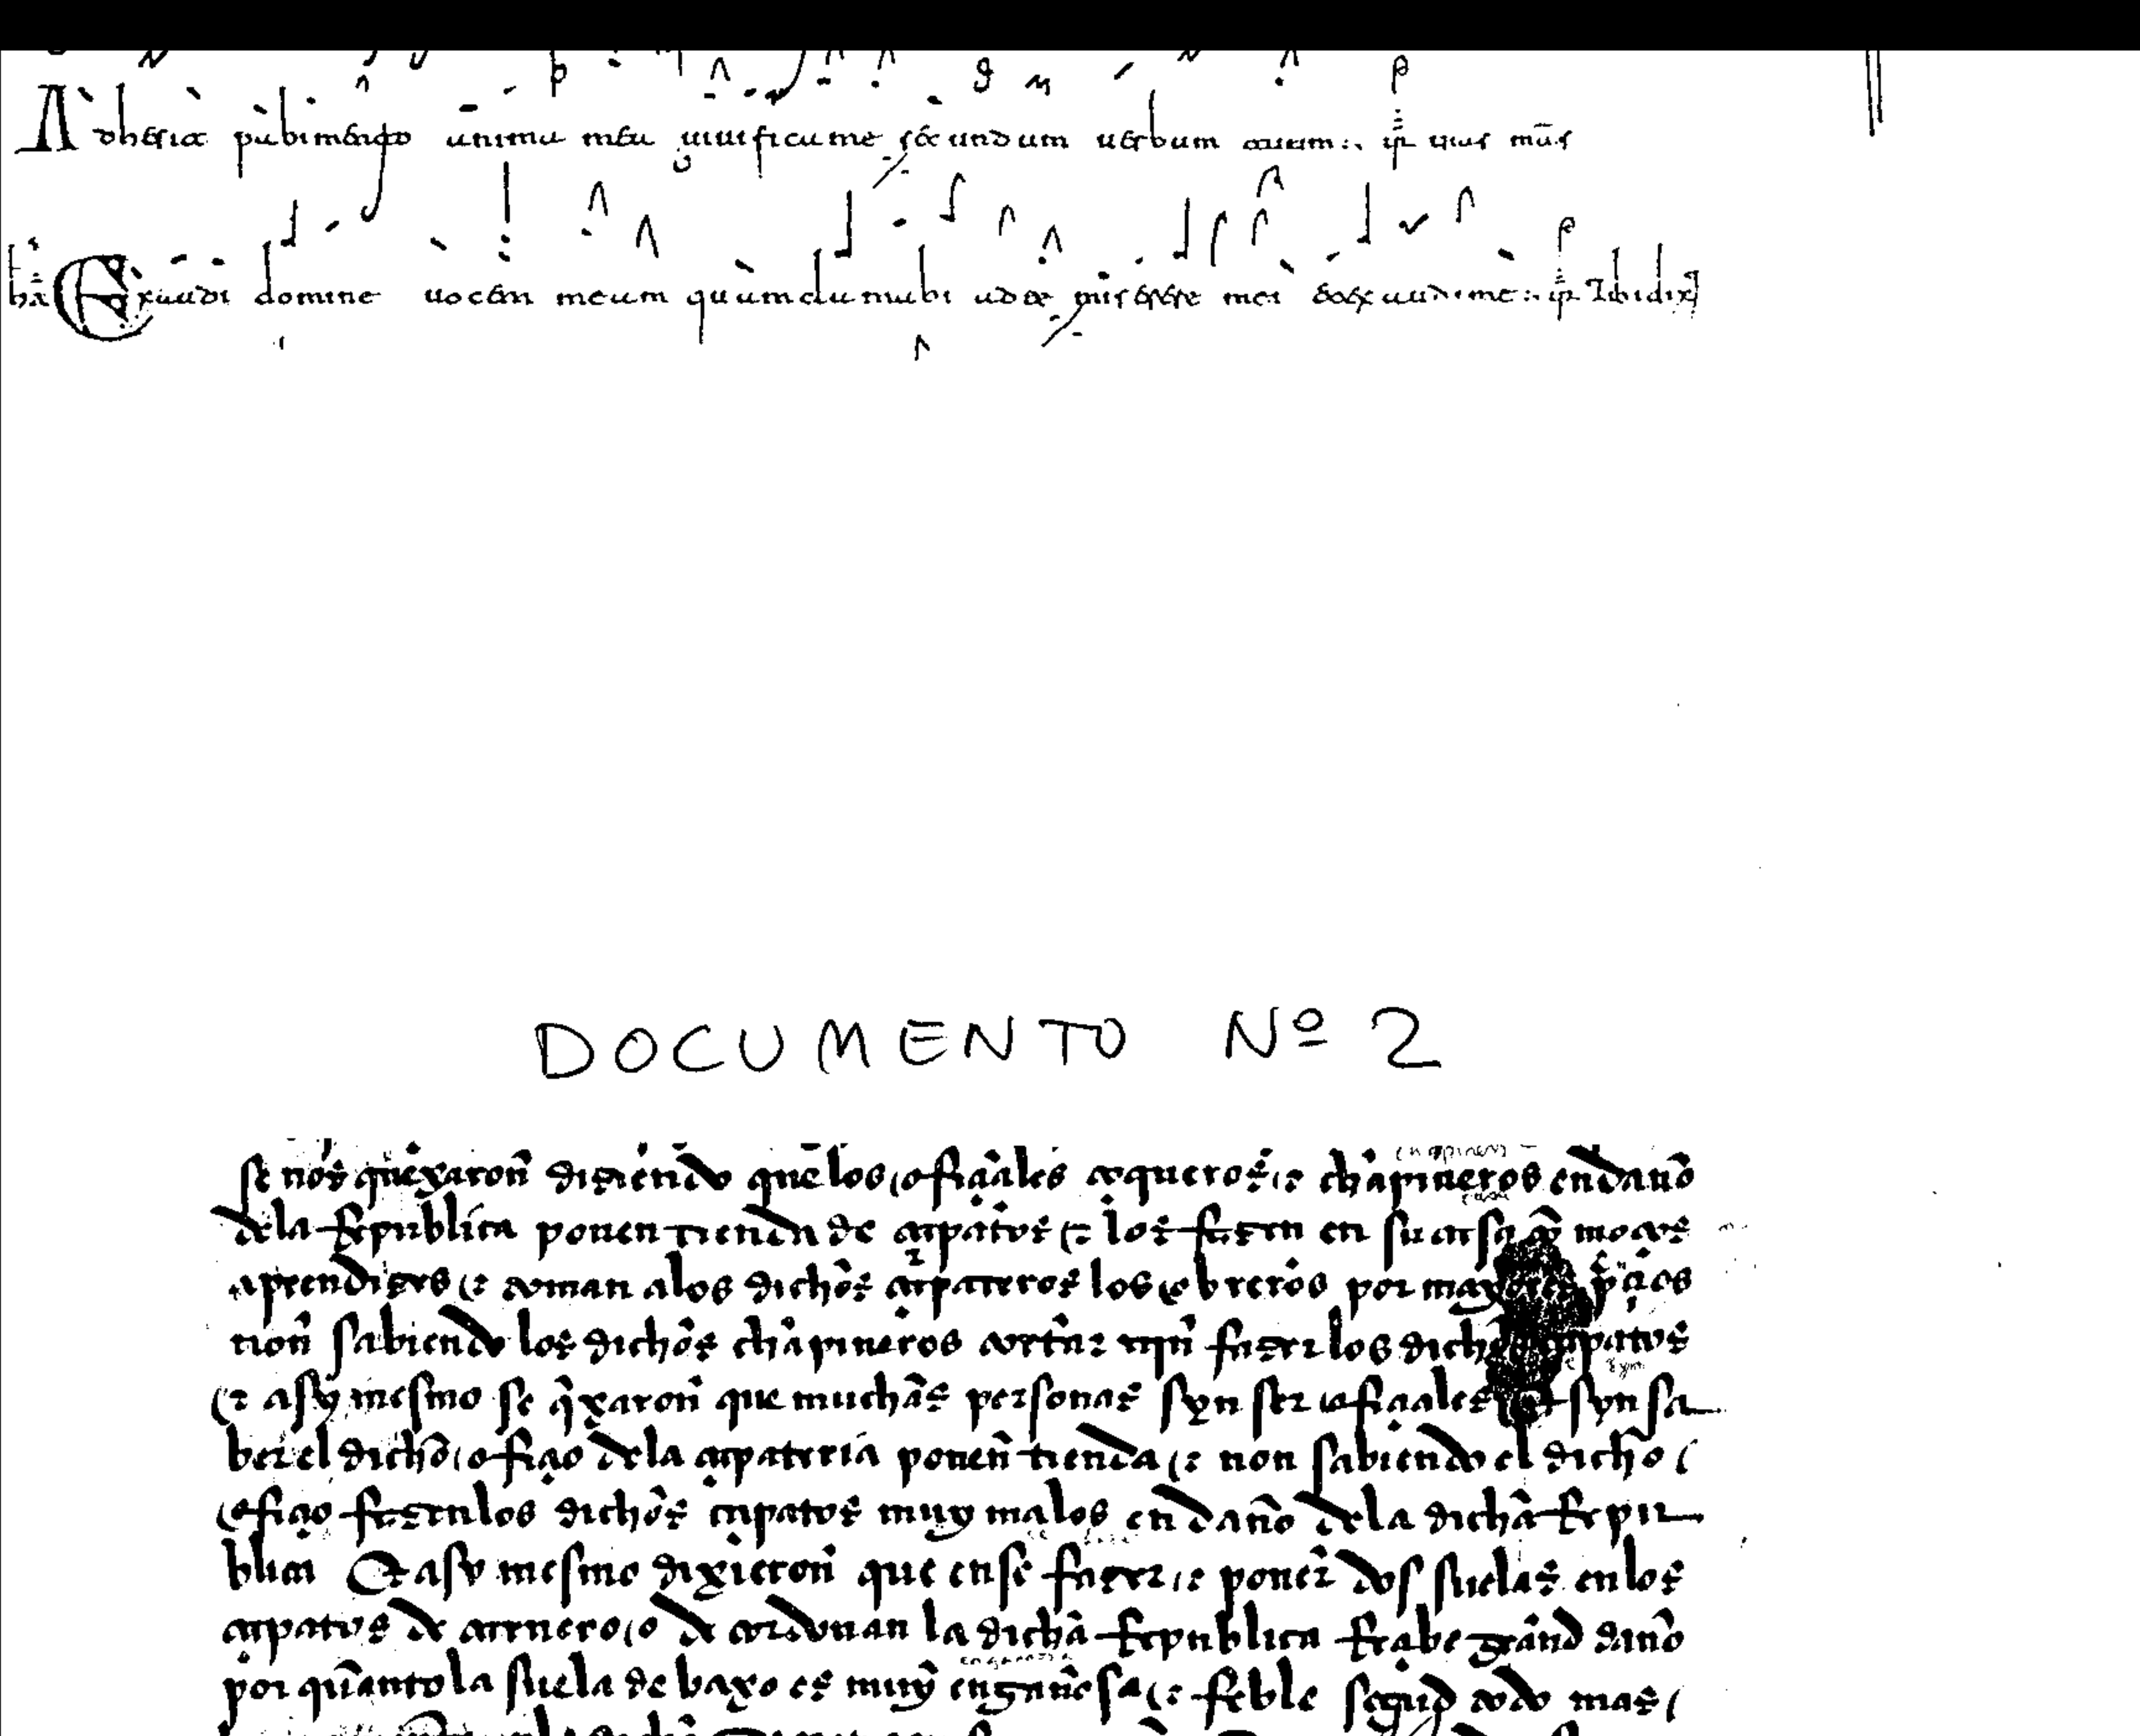 Adhesit pabimento anima mea uiuifica me secundum uerbum tuum :
Exaudi domine uocem meam qua clamabi ad te miserere mei et exaudi me :
DOCUMENTO Nº 2
se nos quexaron disiendo que los ofiçiales xequeros e chapineros en daño
dela Republica ponen tienda de çapatos e los fasen en su casa moços
aprendises e toman alos dichos çapateros los obreros por mayores preçios
non sabiendo los dichos chapineros cortar nin faser los dichos çapatos
e asy mesmo se qxaron que muchas personas syn ser ofiçiales syn sa
ber el dicho ofiçio dela çapateria ponen tienda e non sabiendo el dicho
ofiçio fasen los dichos çapatos muy malos en daño dela dicha Repu
blica E asy mesmo dixieron que en se faser e poner dos suelas en los
çapatos de carnero o de cordouan la dicha Republica Reçabe grand daño
por quanto la suela de baxo es muy engañosa e feble segud todo mas